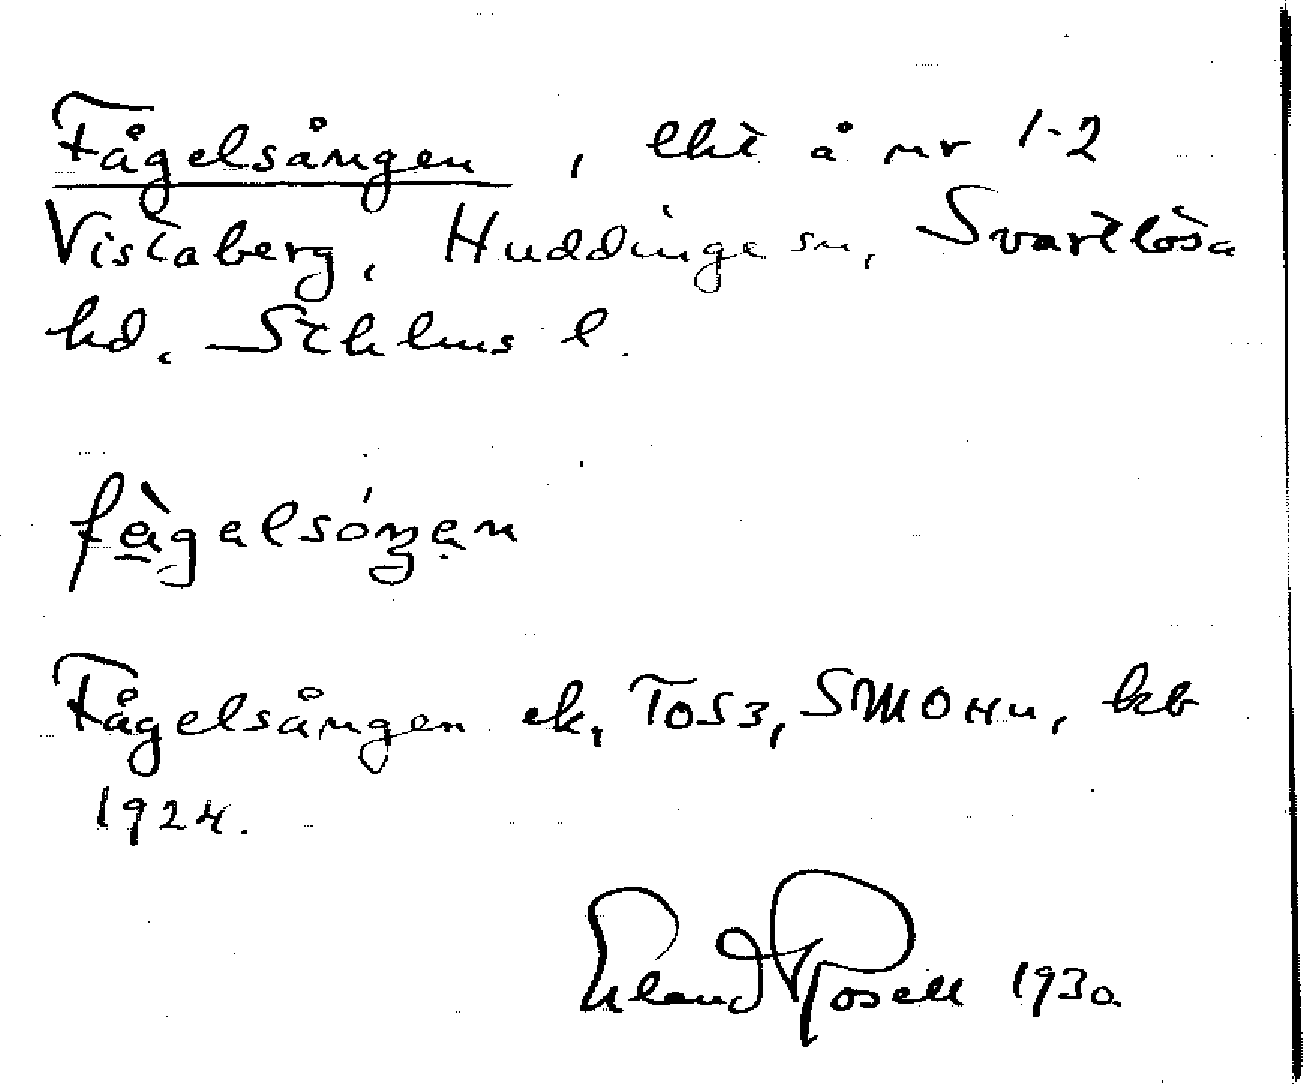 Fågelsången, lht å nr 1-2
Vistaberg, Huddinge sn, Svartlösa
hd. Sthlms l.
fàgelsóŋen
Fågelsången ek, TOS3, SMOHu, kb
1924.
Erland Rosell 1930